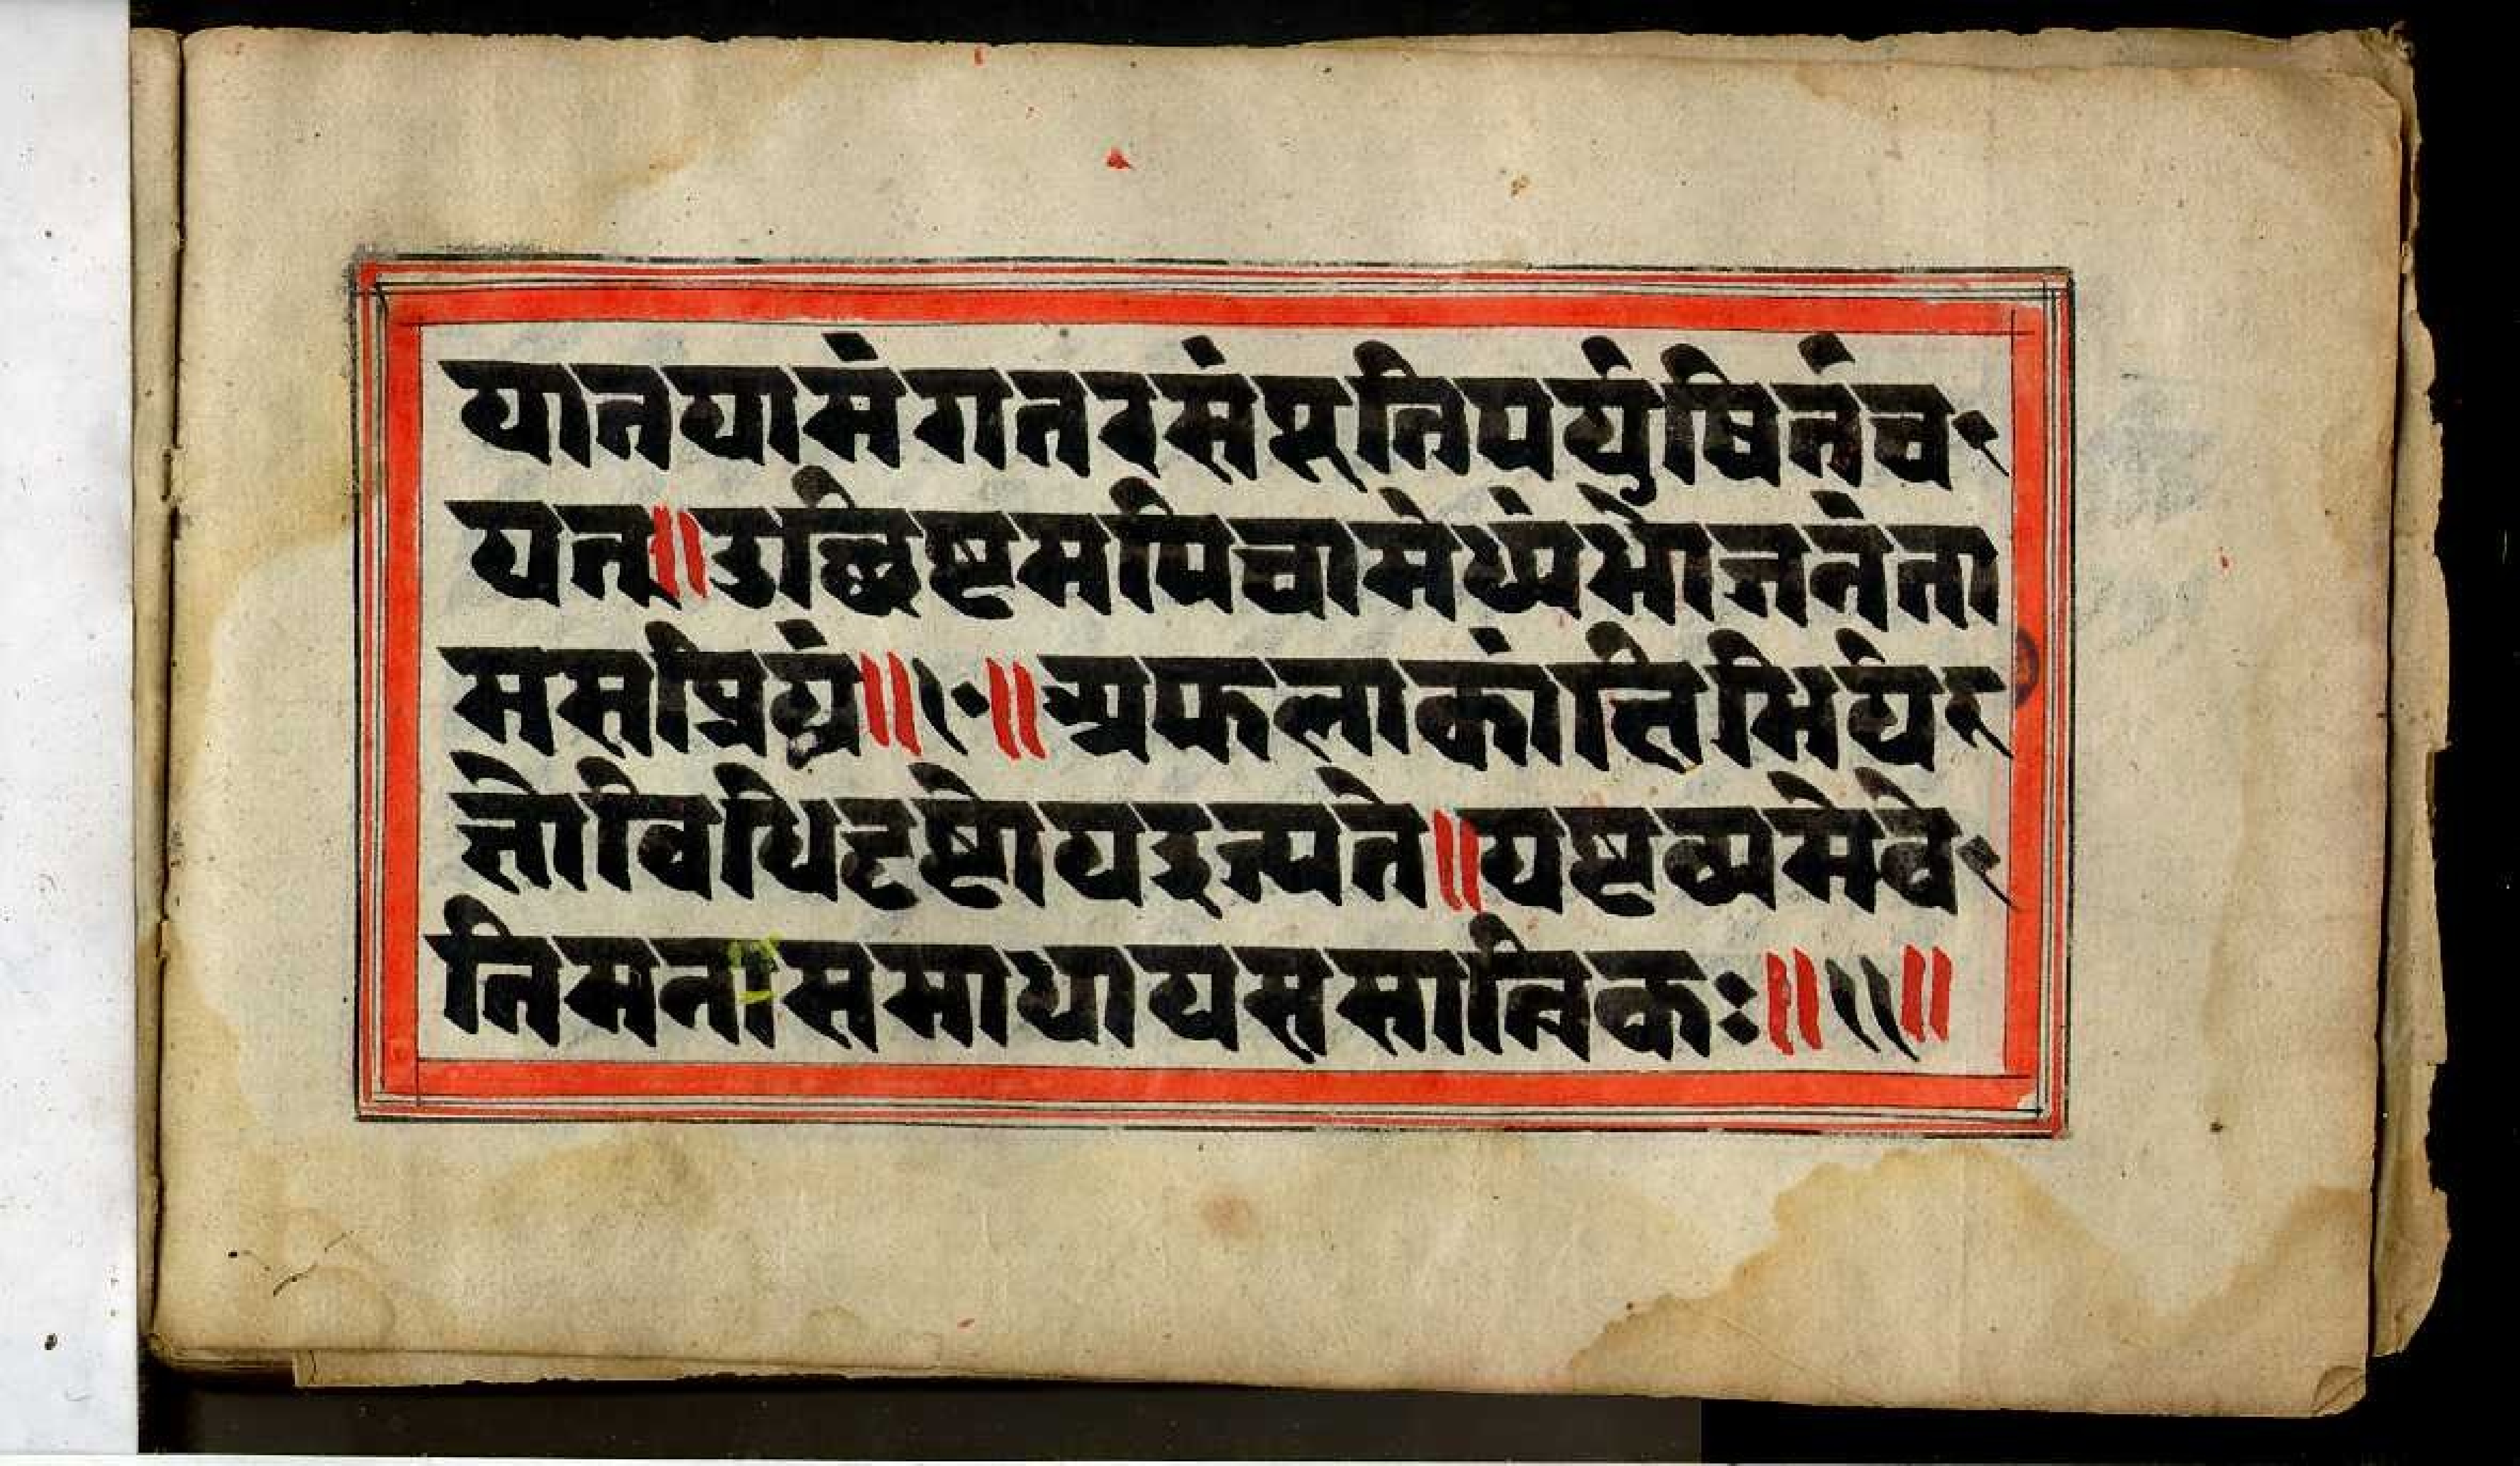 यातयामंगतरसंपूतिपर्युषितंच
यत्॥उच्छिष्टमपिचामेध्यंभोजनंता
मसप्रियं॥१०॥अफलाकांक्षिभिर्यज्
ञोविधिदृष्टोयइज्यते॥यष्टव्यमेवे
तिमनःसमाधायससात्विकः॥११॥